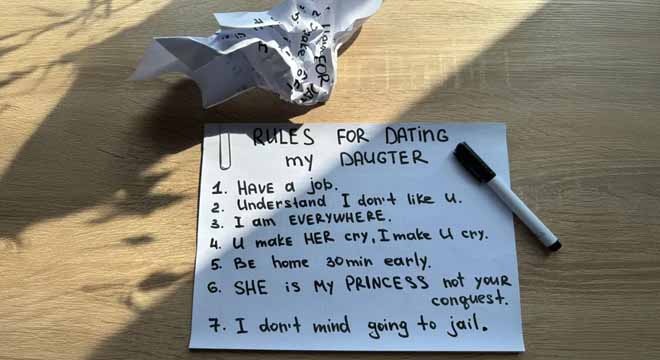 RULES FOR DATING
my DAUGTER
1. HAVE a job.
2. Understand I don't like u.
3. I am EVERYWHERE.
4. U make HER cry, I make U cry.
5. Be home 30 min early.
6. SHE is MY PRINCESS not your
conquest.
7. I don't mind going to jail.